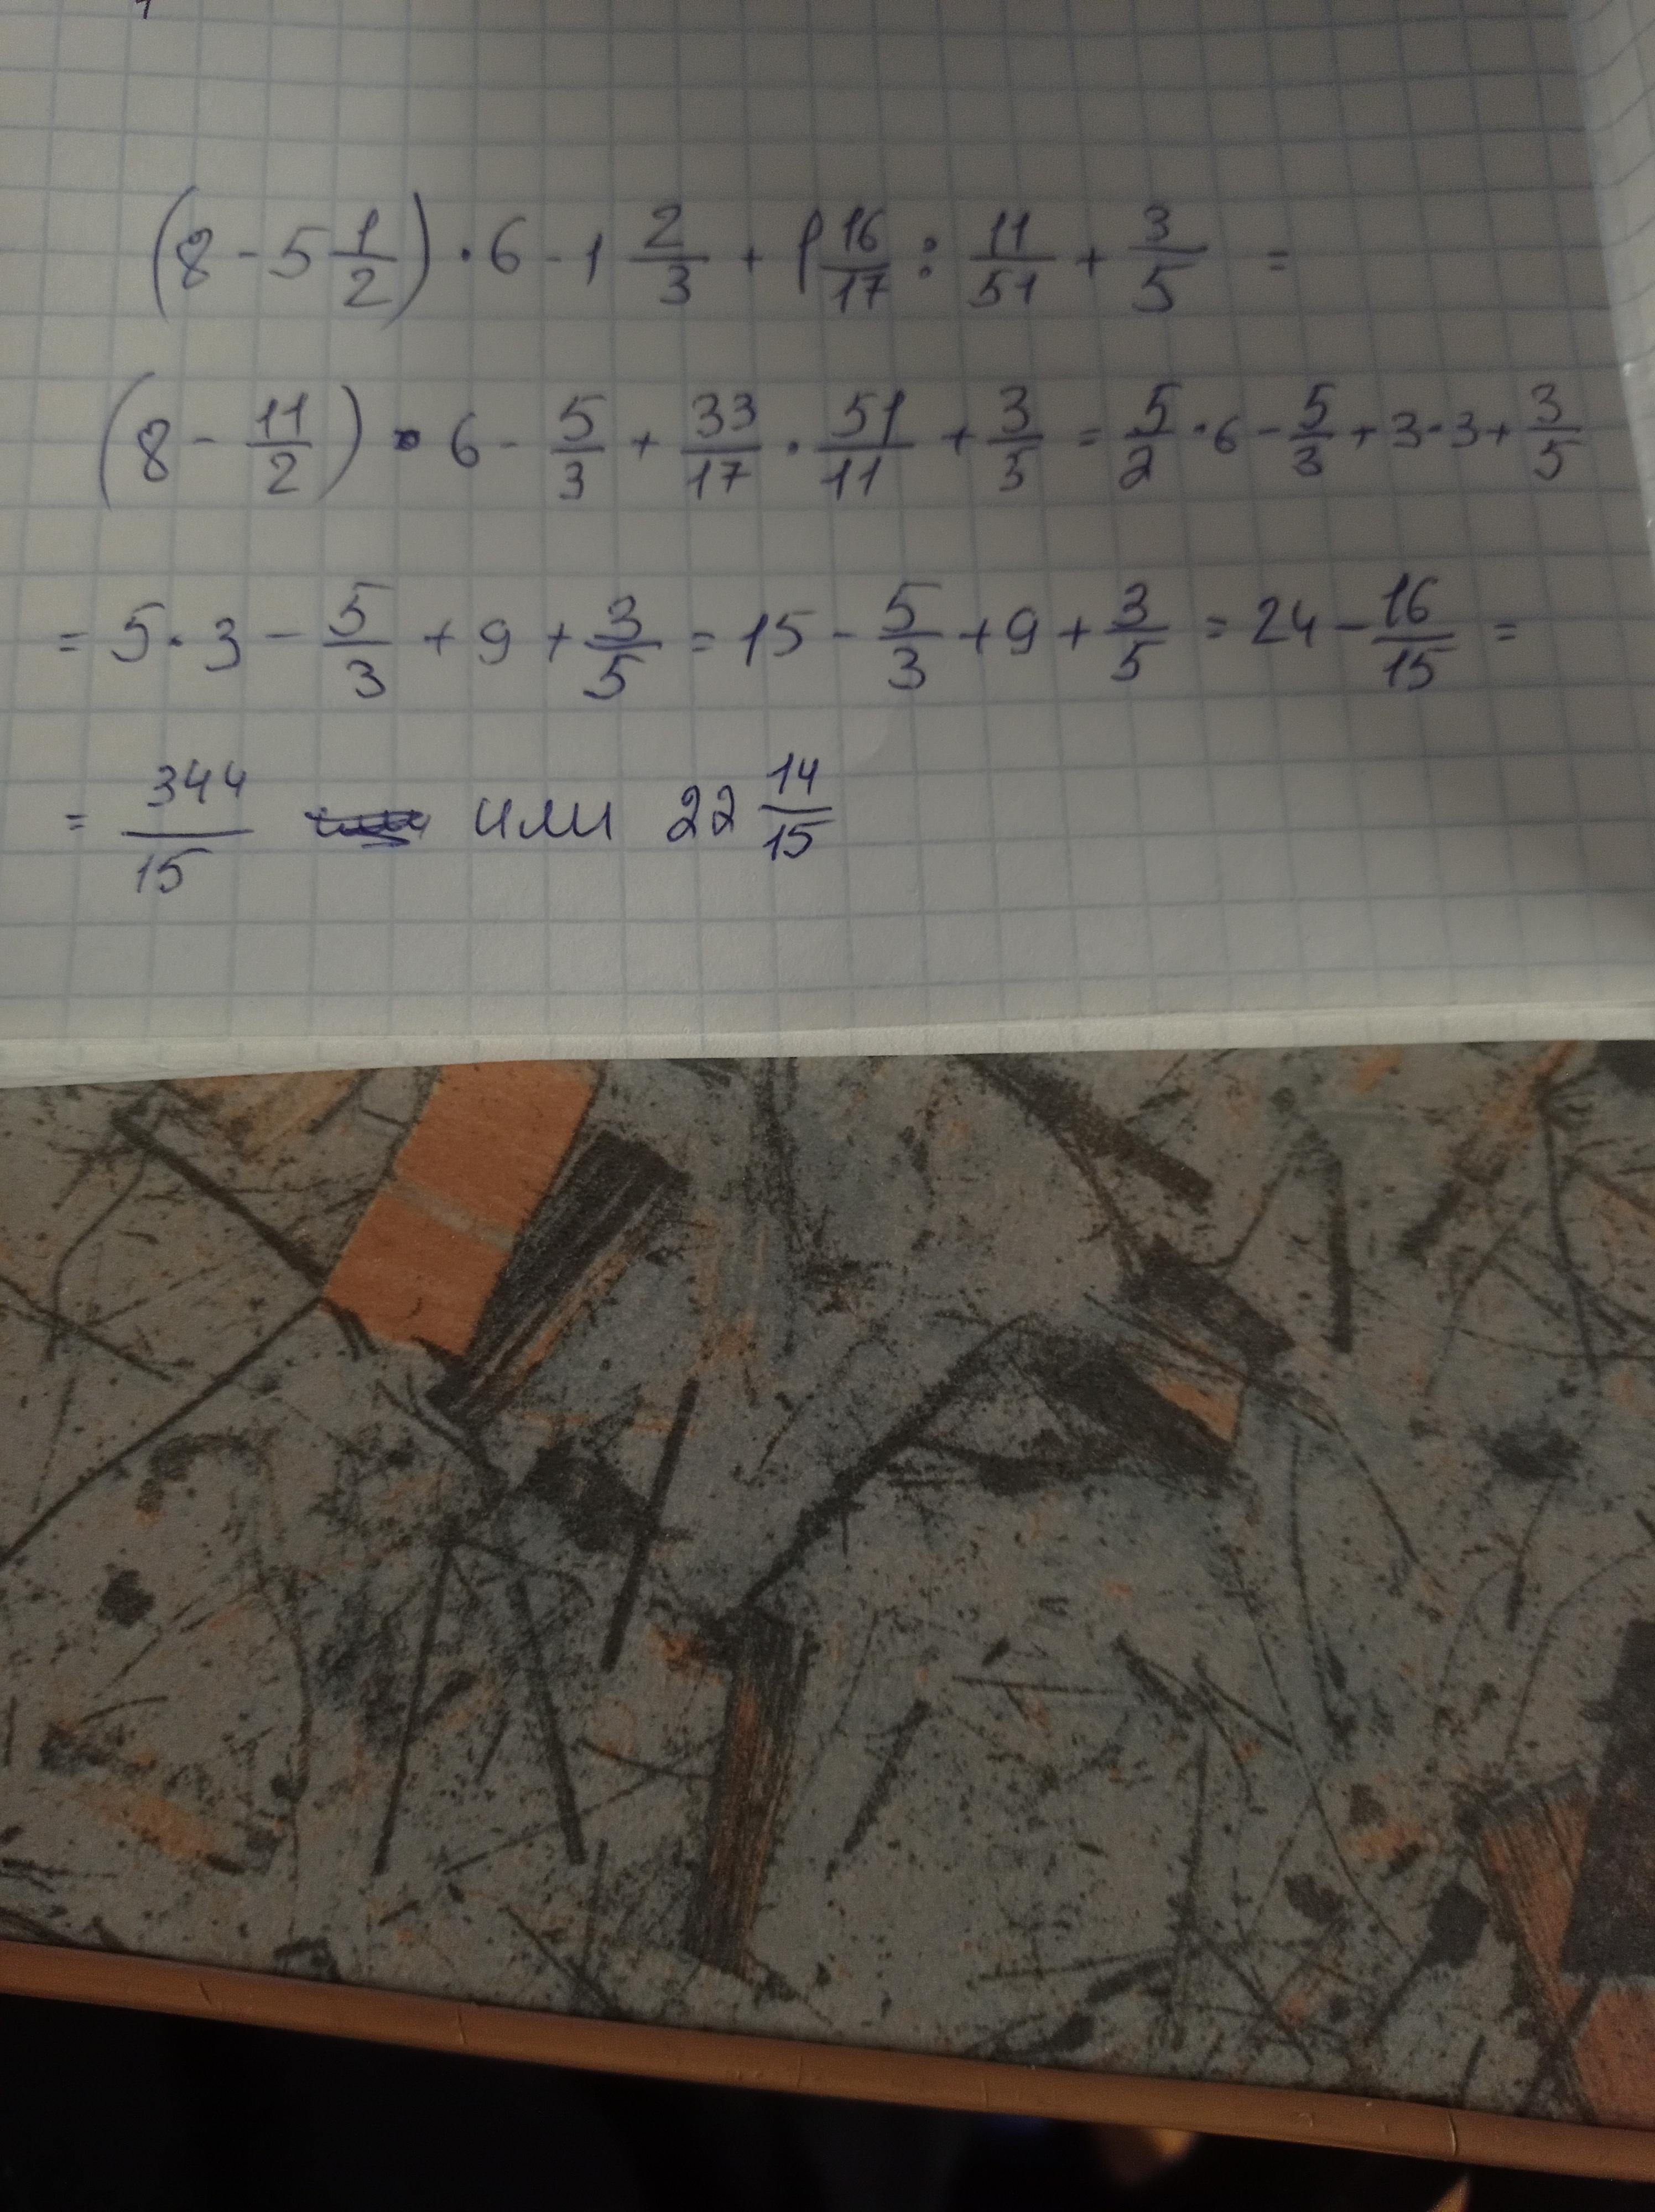 (8 - 5 1/2) · 6 - 1 2/3 + 1 16/17 : 11/51 + 3/5 =
(8 - 11/2) · 6 - 5/3 + 33/17 · 51/11 + 3/5 = 5/2 · 6 - 5/3 + 3 · 3 + 3/5
= 5 · 3 - 5/3 + 9 + 3/5 = 15 - 5/3 + 9 + 3/5 = 24 - 16/15 =
= 344/15 или 22 14/15